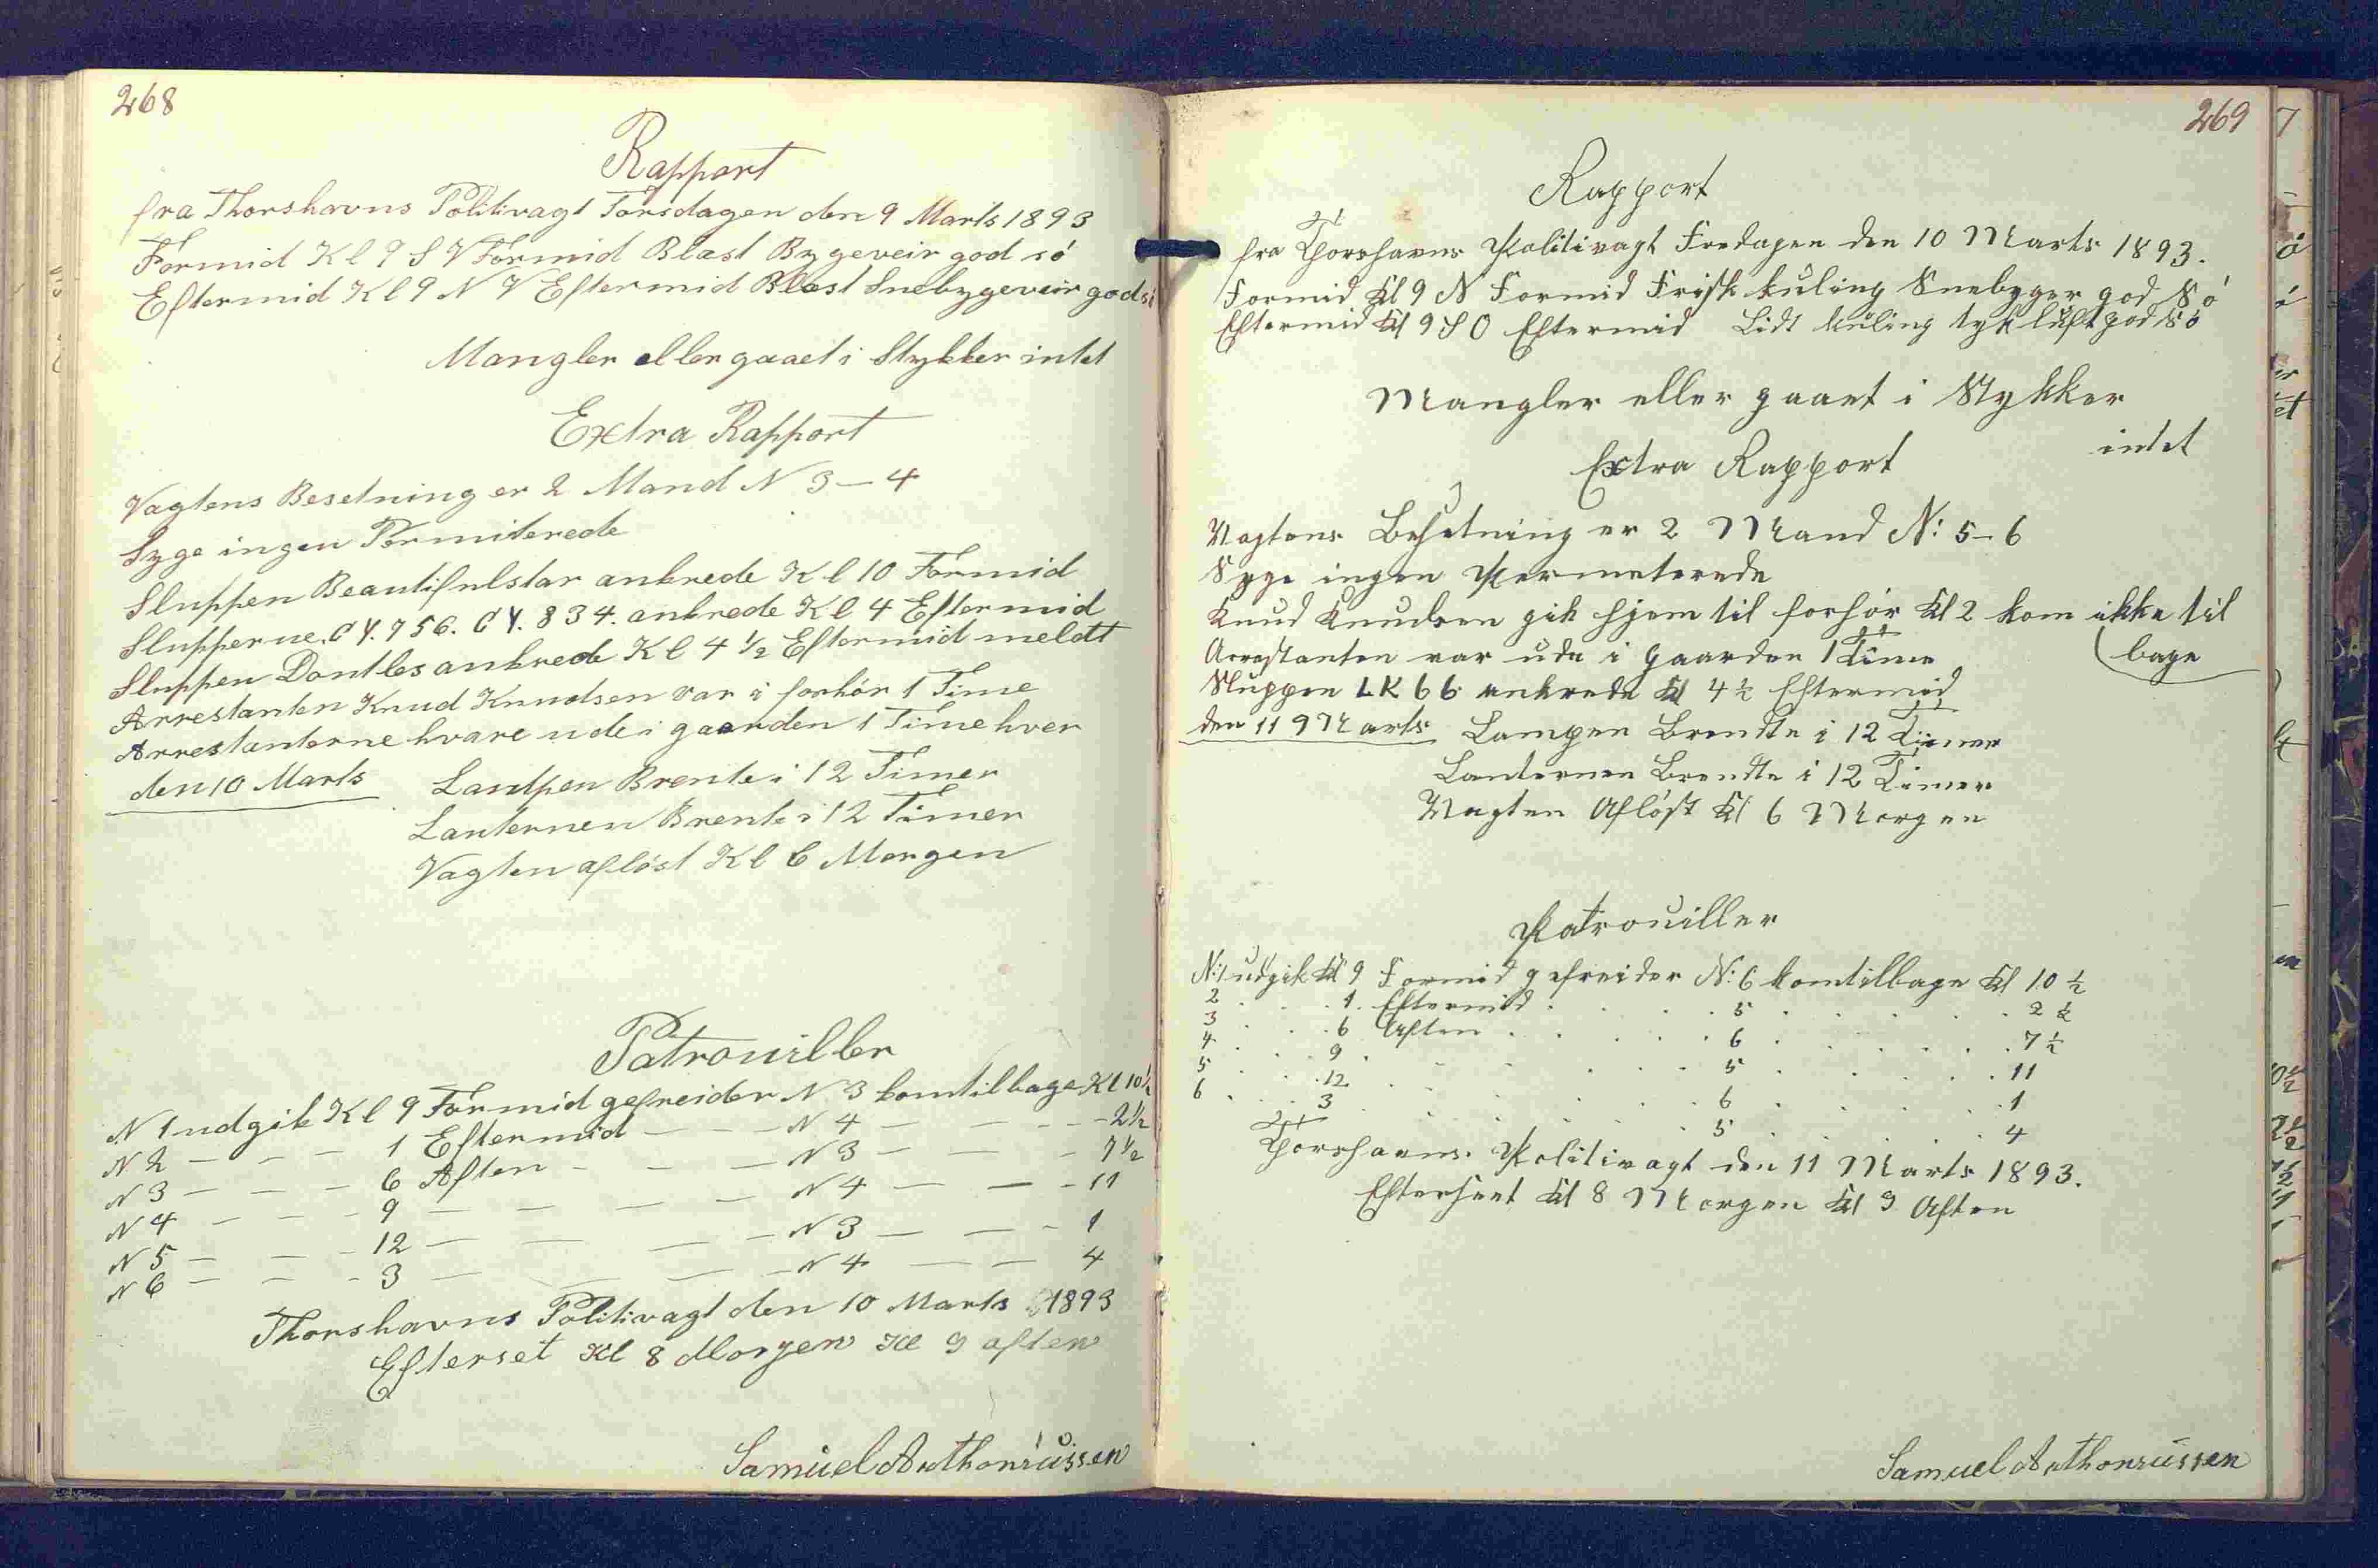 268
Rapport
fra Thorshavns Politivagt Torsdagen den 9 Marts 1893
Formid Kl 9 S V Formid Blæst Bygeveir god só
Eftermid Kl 9 N V Eftermid Blæst Snebygeveir god só
Mangler eller gaaet i Stykker intet
Extra Rapport
Vagtens Besetning er 2 Mand N 3 — 4
Syge ingen Permiterede
Sluppen Beautifulstar ankrede Kl 10 Formid
Slupperne. GY. 756. GY. 834. ankrede Kl 4 Eftermid
Sluppen Dontles ankrede Kl 4 ½ Eftermid meldt
Arrestanten Knud Knudsen var i forhør 1 Time
Arrestanterne hvare ude i gaarden 1 Time hver
den 10 Marts Lampen Brente i 12 Timer
Lanternen Brente i 12 Timer
Vagten afløst Kl 6 Morgen
Patrouiller
N 1 udgik Kl 9 Formid gefreider N 3 komtilbage Kl 10½
N 2 — — — 1 Eftermid — — — N 4 — — — 2½
N 3 — — — 6 Aften — — — N 3 — — — 7½
N 4 — — — 9 — — — — N 4 — — — 11
N 5 — — — 12 — — — — N 3 — — — 1
N 6 — — — 3 — — — — N 4 — — 4
Thorshavns Politivagt den 10 Marts 1893
Efterset Kl 8 Morgen Kl 9 aften
Samuel Anthoniussen
269
Rapport
fra Thorshavns Politivagt Fredagen den 10 Marts 1893.
Formid Kl 9 N Formid Frisk kuling Snebyger god Só
Eftermid Kl 9 S O Eftermid Lidt kuling tyk luft god Só
Mangler eller gaaet i Stykker
intet
Extra Rapport
Vagtens Besetning er 2 Mand N: 5-6
Syge ingen Permeterede
Knud Knudsen gik hjem til forhør Kl 2 kom ikke til
bage
Arrestanten var ude i Gaarden 1 Time
Sluppen LK 66 ankrede Kl 4 ½ Eftermid
den 11 Marts Lampen Brendte i 12 Timer
Lanternen Brendte i 12 Timer
Vagten Afløst Kl 6 Morgen
Patrouiller
N:1 udgik Kl 9 Formid gefreider N: 6 komtilbage Kl 10 ½
2 . . . 1 Eftermid . . . 5 . . . 2 ½
3 . . . 6 Aften . . . 6 . . . 7 ½
4 . . . 9 . . . 5 . . . 11
5 . . . 12 . . . 6 . . . 1
6 . . . 3 . . . 5 . . . 4
Thorshavns. Politivagt den 11 Marts 1893.
Efterseet Kl 8 Morgen Kl 9 Aften
Samuel Anthoniussen